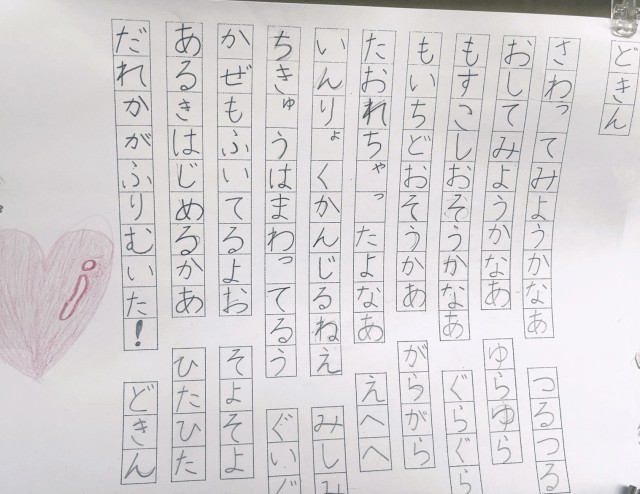 どきん
さわってみようかなあ つるつる
おしてみようかなあ ゆらゆら
もすこしおそうかなあ ぐらぐら
もいちどおそうかあ がらがら
たおれちゃったよなあ えへへ
いんりょくかんじるねえ みしみ
ちきゅうはまわってるう ぐいぐ
かぜもふいてるよお そよそよ
あるきはじめるかあ ひたひた
だれかがふりむいた! どきん